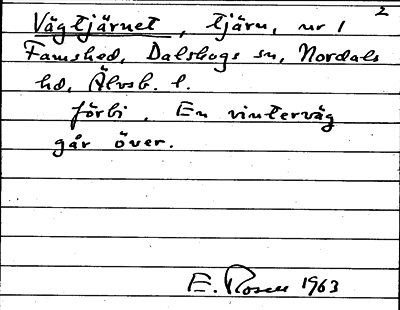 2
Vägtjärnet, tjärn, nr 1
Famshed, Dalskogs sn, Nordals
hd, Älvsb. l.
förbi. En vinterväg
går över.
E. Rosell 1963